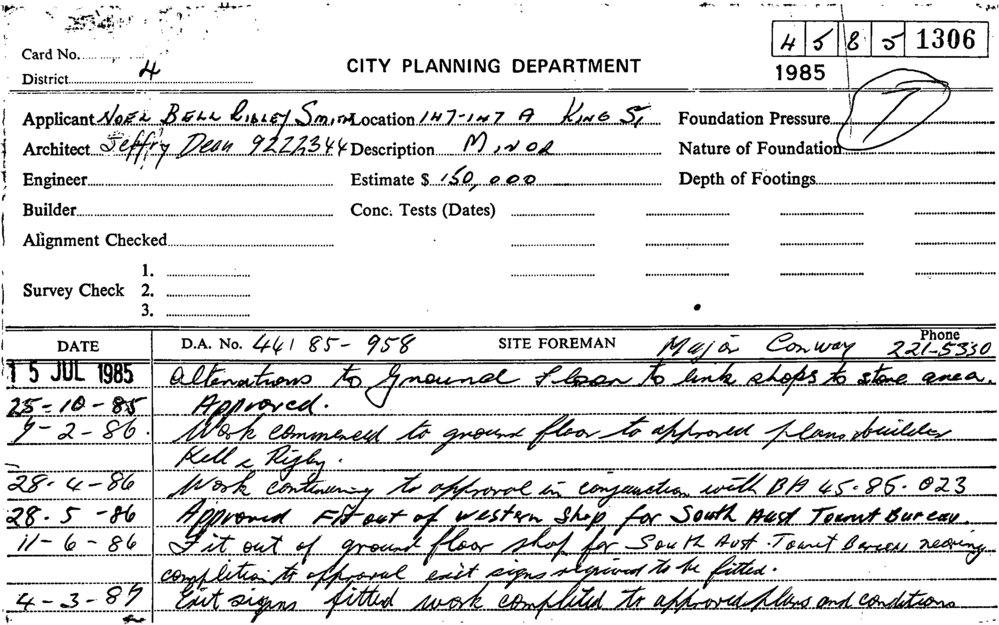 4 5 8 5 1306
Card No.
District 4
CITY PLANNING DEPARTMENT
1985
Applicant Noel Bell Ridley Smith Location 147-147 A King St Foundation Pressure
Architect Jeffry Dean 9222344 Description Minor Nature of Foundation
Engineer Estimate $ 150,000 Depth of Footings
Builder Conc. Tests (Dates)
Alignment Checked
1.
Survey Check 2.
3.
DATE D.A. No. 44 85-958 SITE FOREMAN Major Conway Phone 221-5330
15 JUL 1985 Alterations to Ground Floor to link shops to store area.
25-10-85 Approved.
7-2-86. Work commenced to ground floor to approved plans builder
Kell & Rigby.
28-4-86 Work continuing to approval in conjunction with BA 45.86.023
28.5-86 Approved Fit out of western Shop for South Aust Tourist Bureau.
11-6-86 Fit out of ground floor shop for South Aust. Tourist Bureau nearing
completion to approval exit signs required to be fitted.
4-3-87 Exit signs fitted work completed to approved plans and conditions